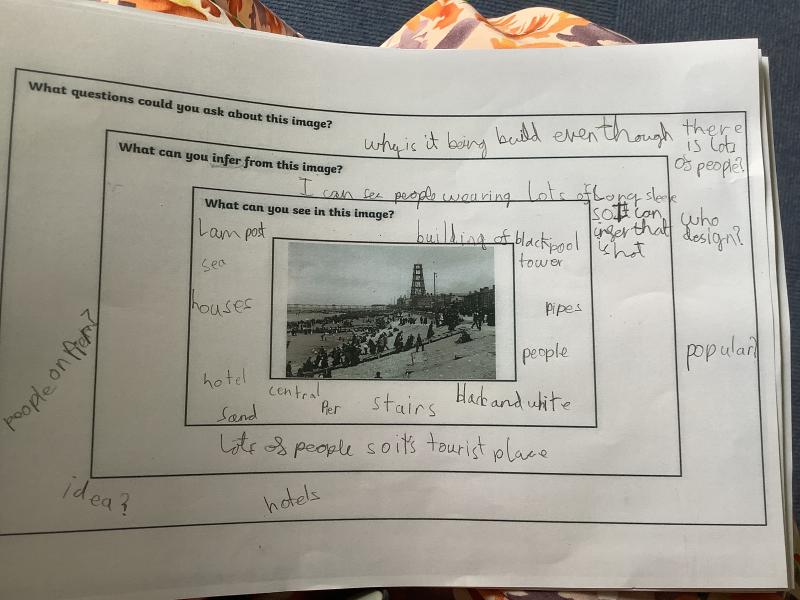 What questions could you ask about this image?
why is it being build even though there
is lots
of people?
What can you infer from this image?
I can see people wearing lots of Long sleve
so I can
infger that
is hot
who
design?
What can you see in this image?
Lam post
building of blackpool
tower
sea
houses
pipes
people
popular?
people on Pier?
hotel
central
Per
stairs
black and white
sand
lots of people so it's tourist place
idea?
hotels